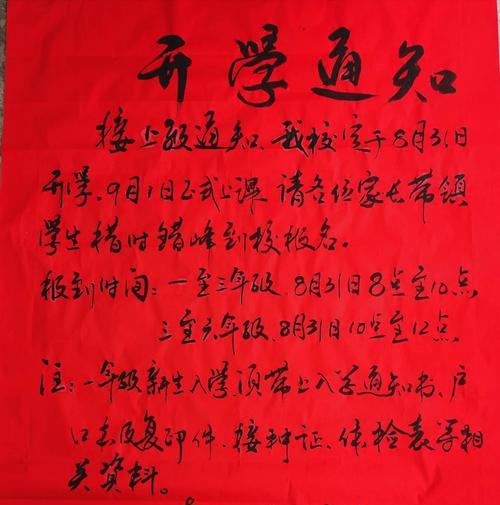 开学通知
接上级通知、我校定于8月31日
开学、9月1日正式上课、请各位家长带领
学生错时错峰到校报名。
报到时间：一至三年级、8月31日8点至10点
三至六年级、8月31日10点至12点、
注：一年级新生入学须带上入学通知书、户
口本及复印件、接种证、体检表等相
关资料。